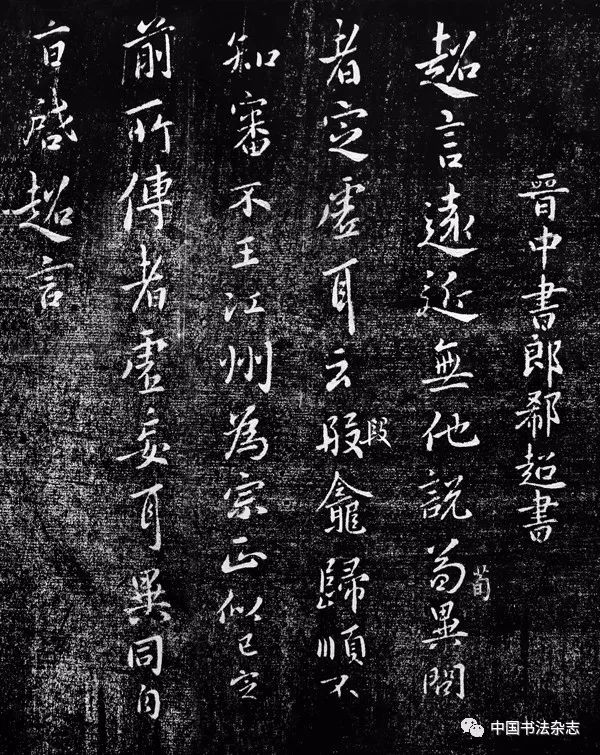 晉中書郎郗超書
超言遠近無他說荀異問
荀
者定虛耳云段龕歸順不
段
知審不王江州為宗正似已定
前所傳者虛妄耳異同自
啓超言
中国书法杂志